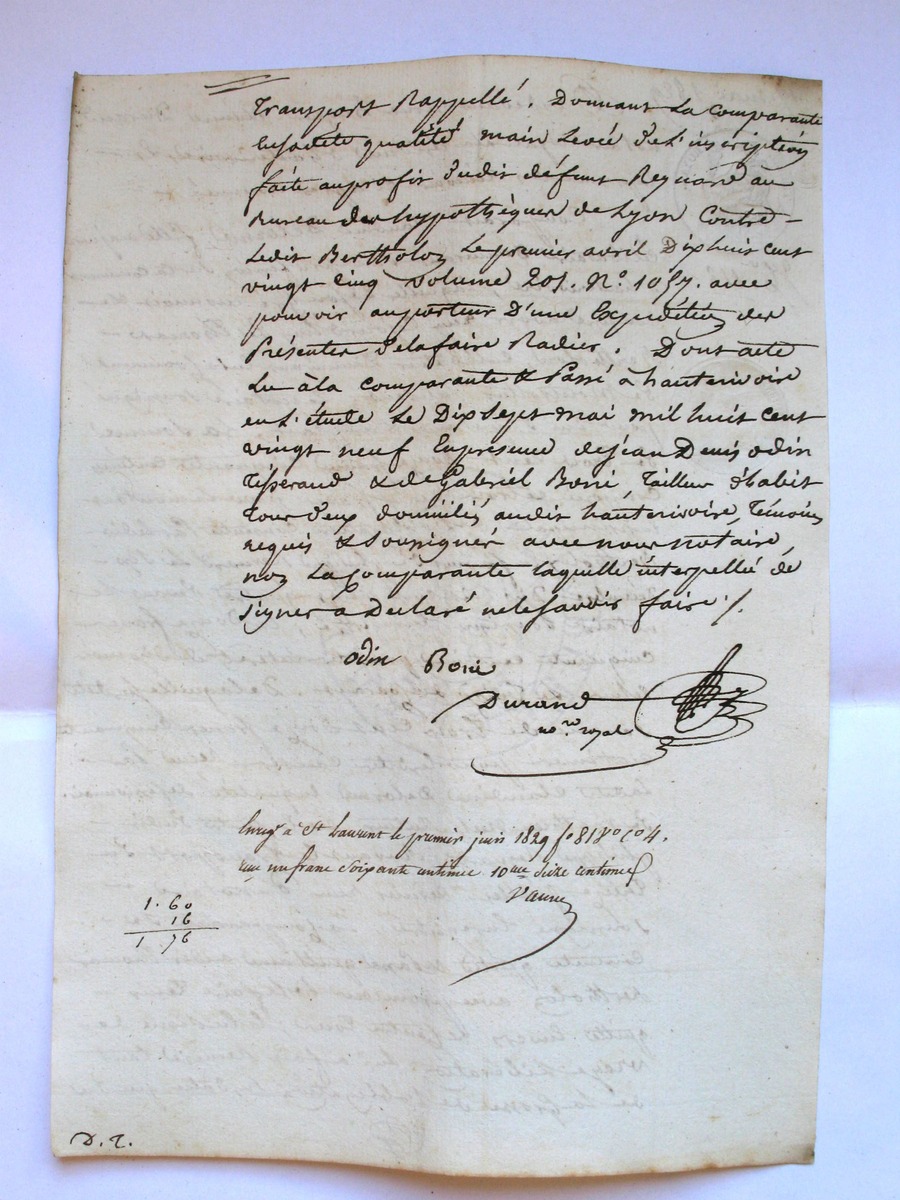 Transport Rappellé. Donnant La Comparante
En sadite qualité main Levée de L'inscription
faite au profit dudit défunt Reynard au
Bureau des hypothèques de Lyon Contre
Ledit Bertholon Le premier avril Dix huit cent
vingt Cinq volume 201. N.º 1057. avec
pouvoir au porteur D'une Expédition des
Présentes de la faire Radier. Dont acte
Lu à la comparante & Passé à hauterivoire
en L'étude Le Dix Sept mai mil huit cent
vingt neuf En présence de jean Denis odin
Tisserand & de Gabriel Boni Tailleur d'habit
Tous deux domiciliés audit hauterivoire, Témoins
requis & Soussignés avec nous notaire
non La Comparante laquelle interpellée de
signer a Déclaré ne le Savoir faire ./.
odin Boni
Durand
no.re royal
Enreg.é à St Laurent le premier juin 1829 fo 81 Vo Co 4.
reçu un franc soixante centimes 10me seize centimes
1. 60
16
1 76
D. R.